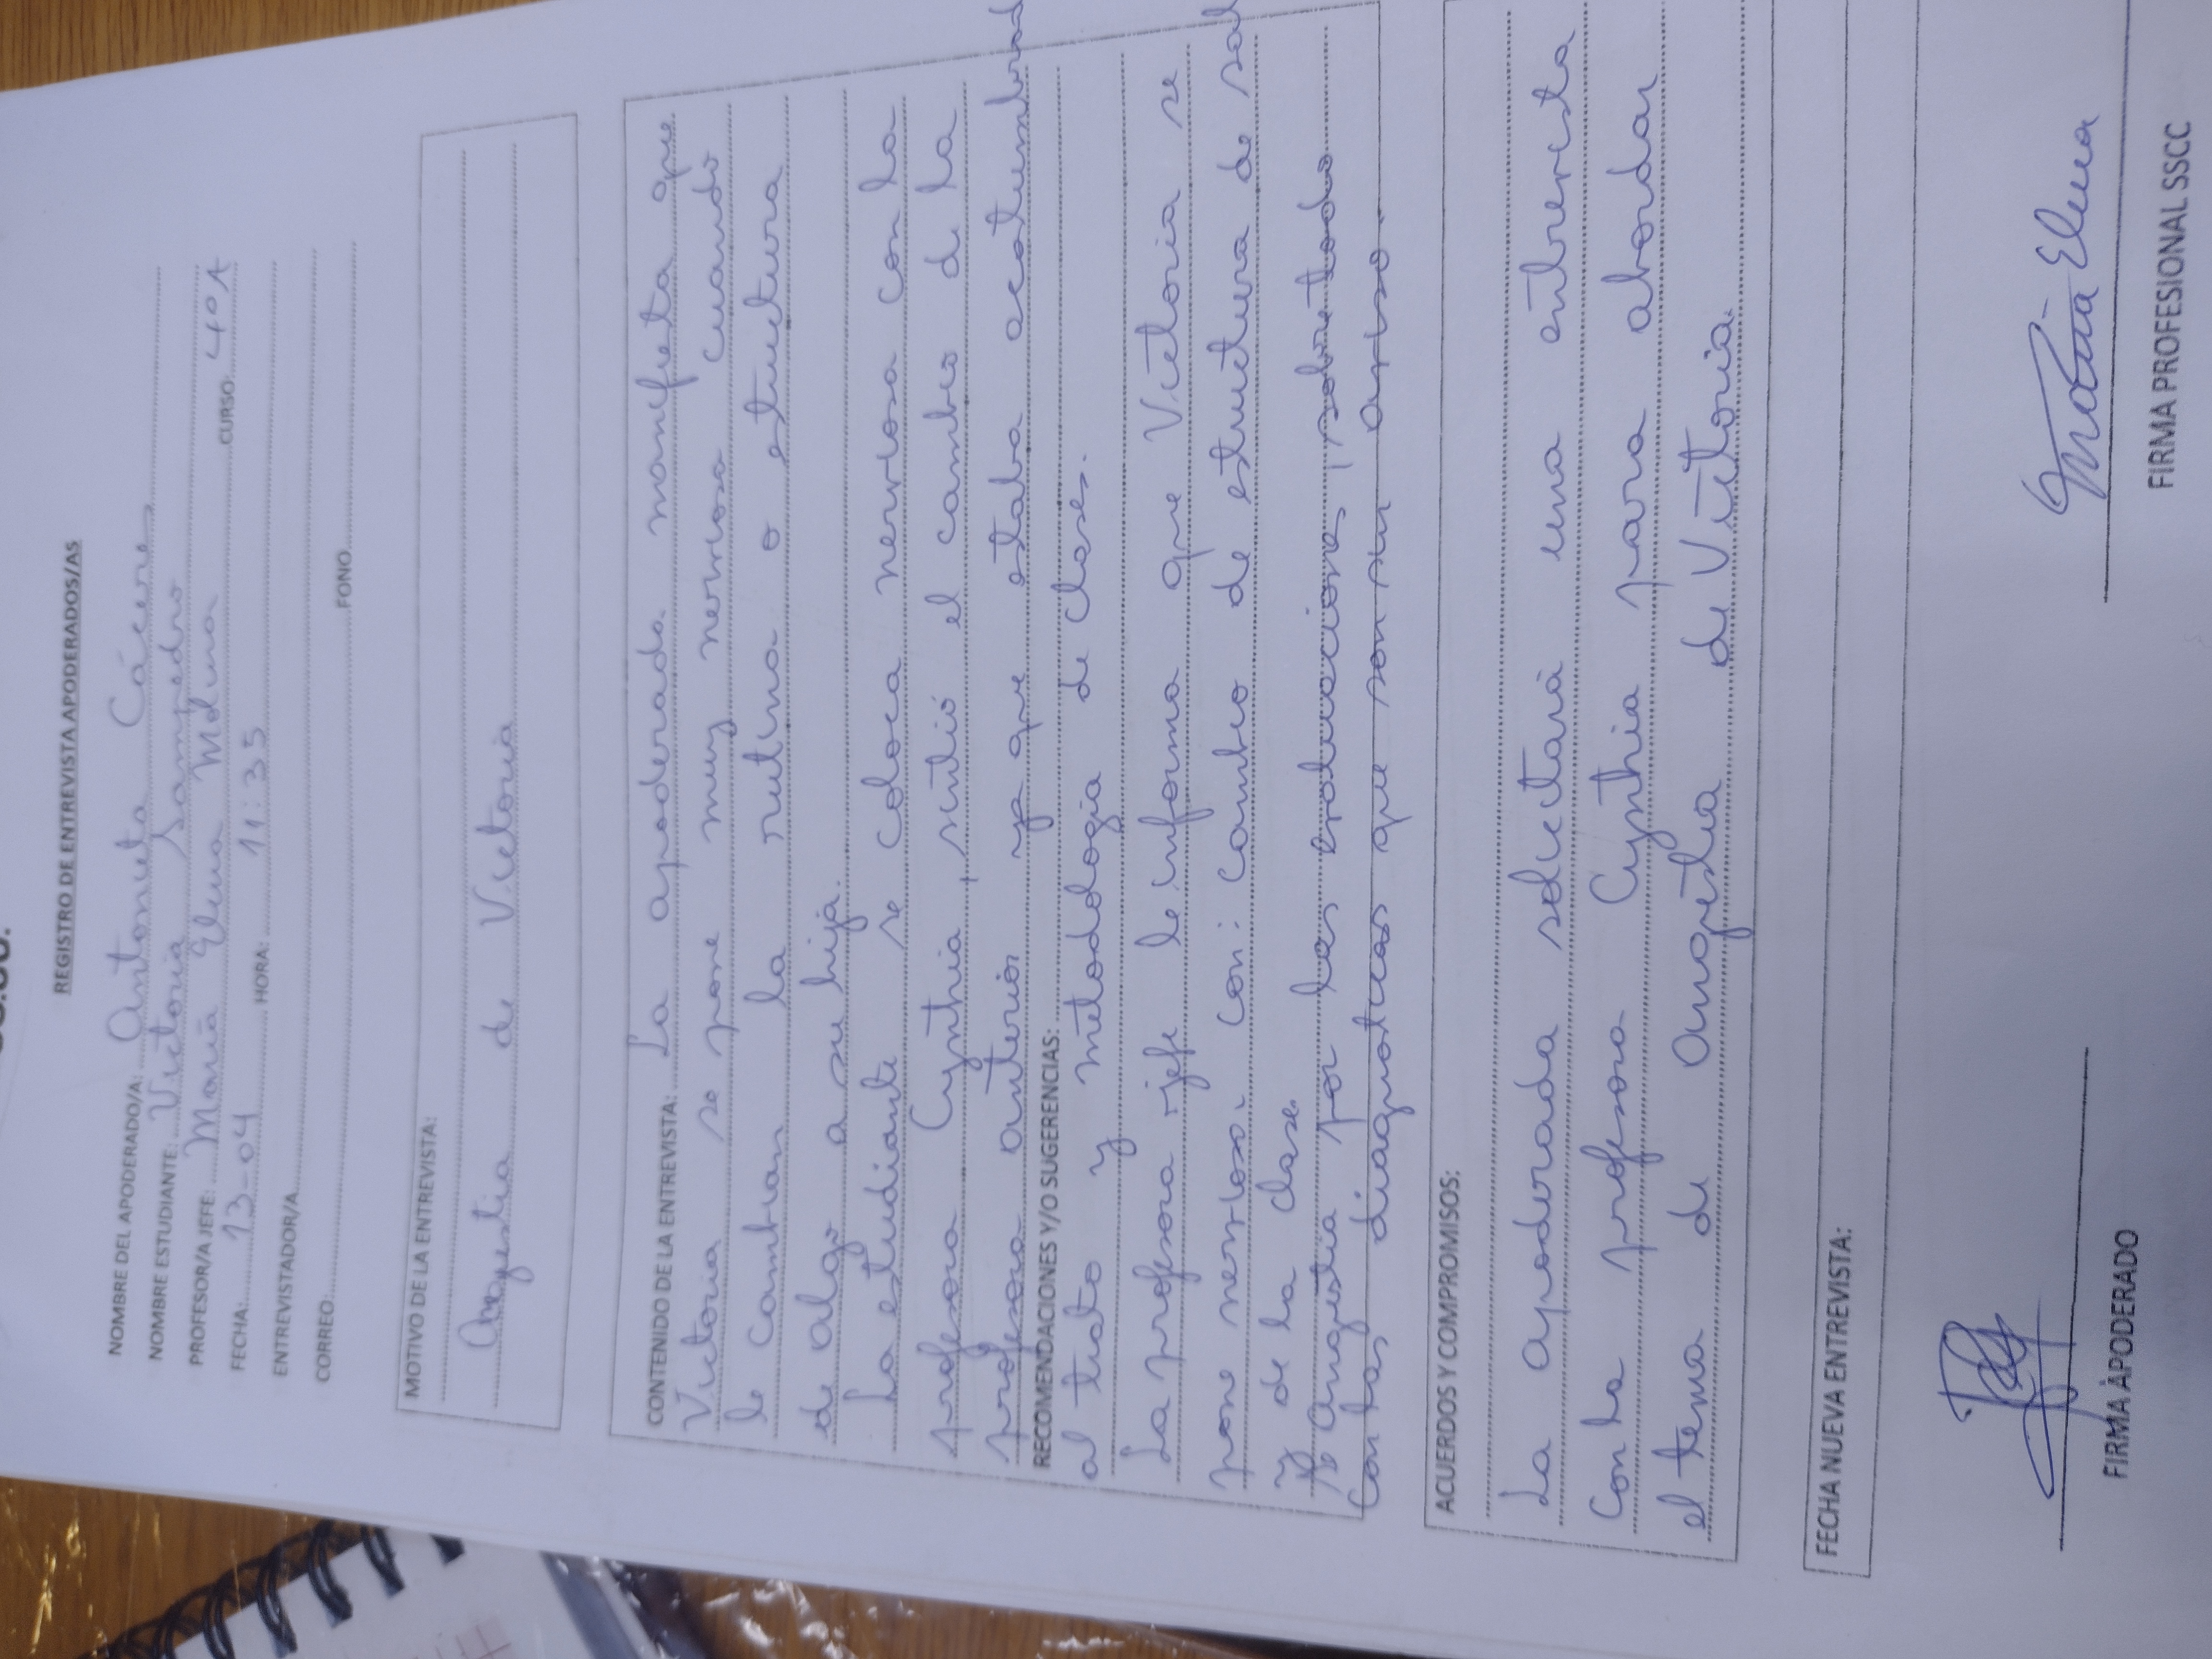 REGISTRO DE ENTREVISTA APODERADOS/AS
NOMBRE DEL APODERADO/A: Antonieta Cáceres
NOMBRE ESTUDIANTE: Victoria Sampedro
PROFESOR/A JEFE: María Elena Medina CURSO: 4°A
FECHA: 13-04 HORA: 11:35
ENTREVISTADOR/A
CORREO: FONO
MOTIVO DE LA ENTREVISTA:
Angustia de Victoria
CONTENIDO DE LA ENTREVISTA: La apoderada manifiesta que
Victoria se pone muy nerviosa cuando
le cambian la rutina o estructura
de algo a su hija.
La estudiante se coloca nerviosa con la
profesora Cynthia, sintió el cambio de la
profesora anterior ya que estaba acostumbrad
RECOMENDACIONES Y/O SUGERENCIAS:
al trato y metodología de clases.
La profesora jefe le informa que Victoria se
pone nerviosa con: cambio de estructura de
y de la clase.
angustia por las evaluaciones, sobre todo
con las diagnósticas que son sin aviso.
ACUERDOS Y COMPROMISOS:
La apoderada solicitará una entrevista
con la profesora Cynthia para abordar
el tema de angustia de Victoria.
FECHA NUEVA ENTREVISTA:
María Elena
FIRMA APODERADO FIRMA PROFESIONAL SSCC